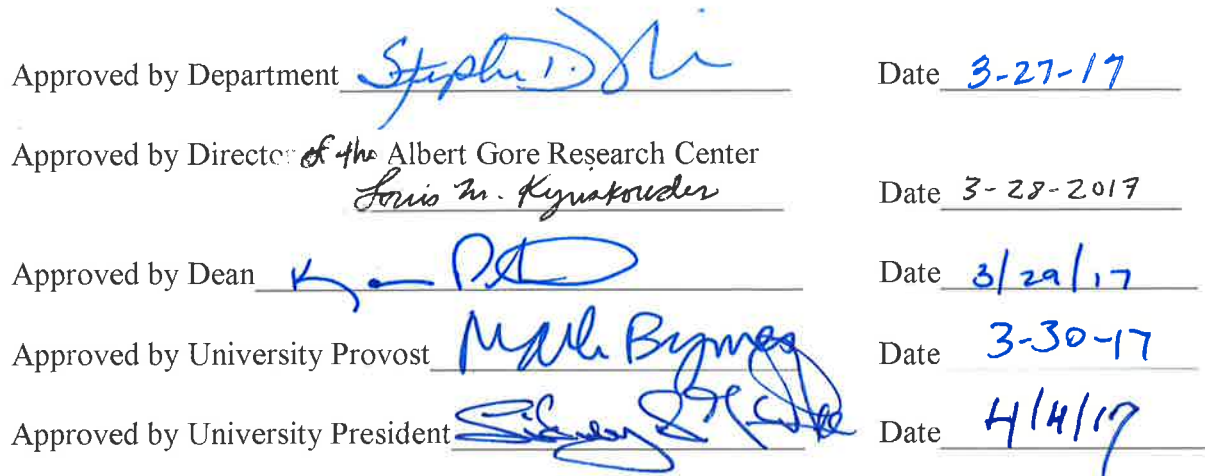 Approved by Department Date 3-27-17
Approved by Director of the Albert Gore Research Center
Louis M. Kyriakoudes Date 3-28-2017
Approved by Dean Date 3/29/17
Approved by University Provost Mark Byrnes Date 3-30-17
Approved by University President Sidney Date 4/4/17